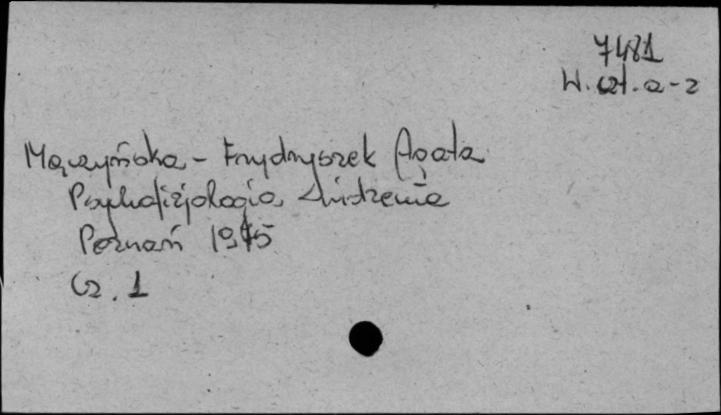 7481
W. czt. a-z
Mączyńska - Frydryszek Agata
Psychofizjologia widzenia
Poznań 1995
Cz. 1